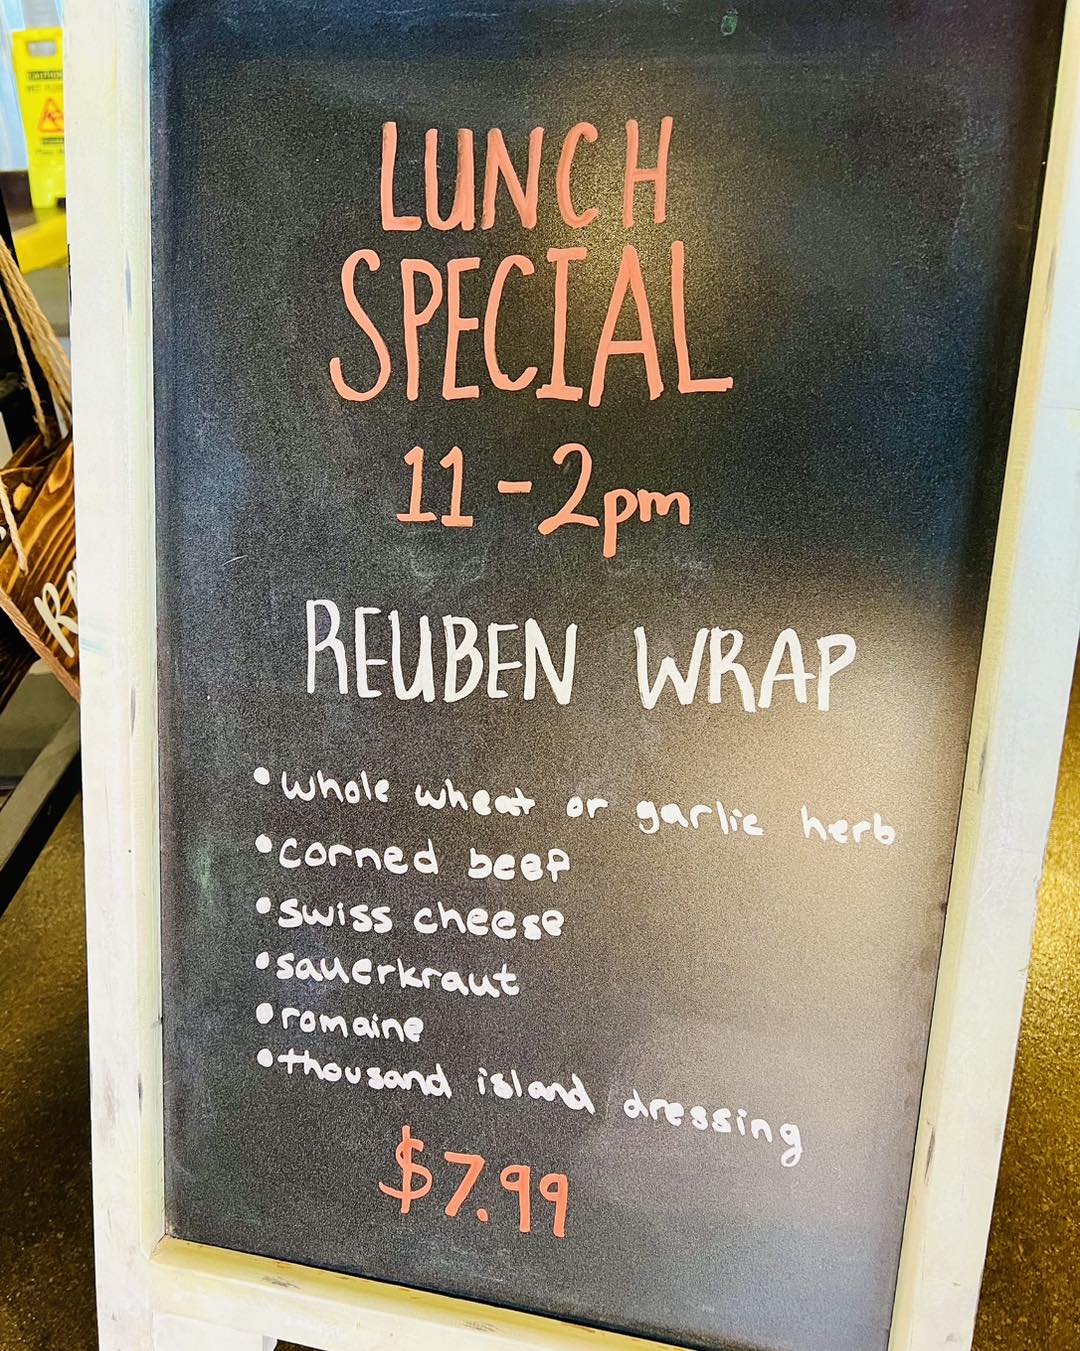 LUNCH
SPECIAL
11-2pm
REUBEN WRAP
•whole wheat or garlic herb
•corned beef
•swiss cheese
•sauerkraut
•romaine
•thousand island dressing
$7.99